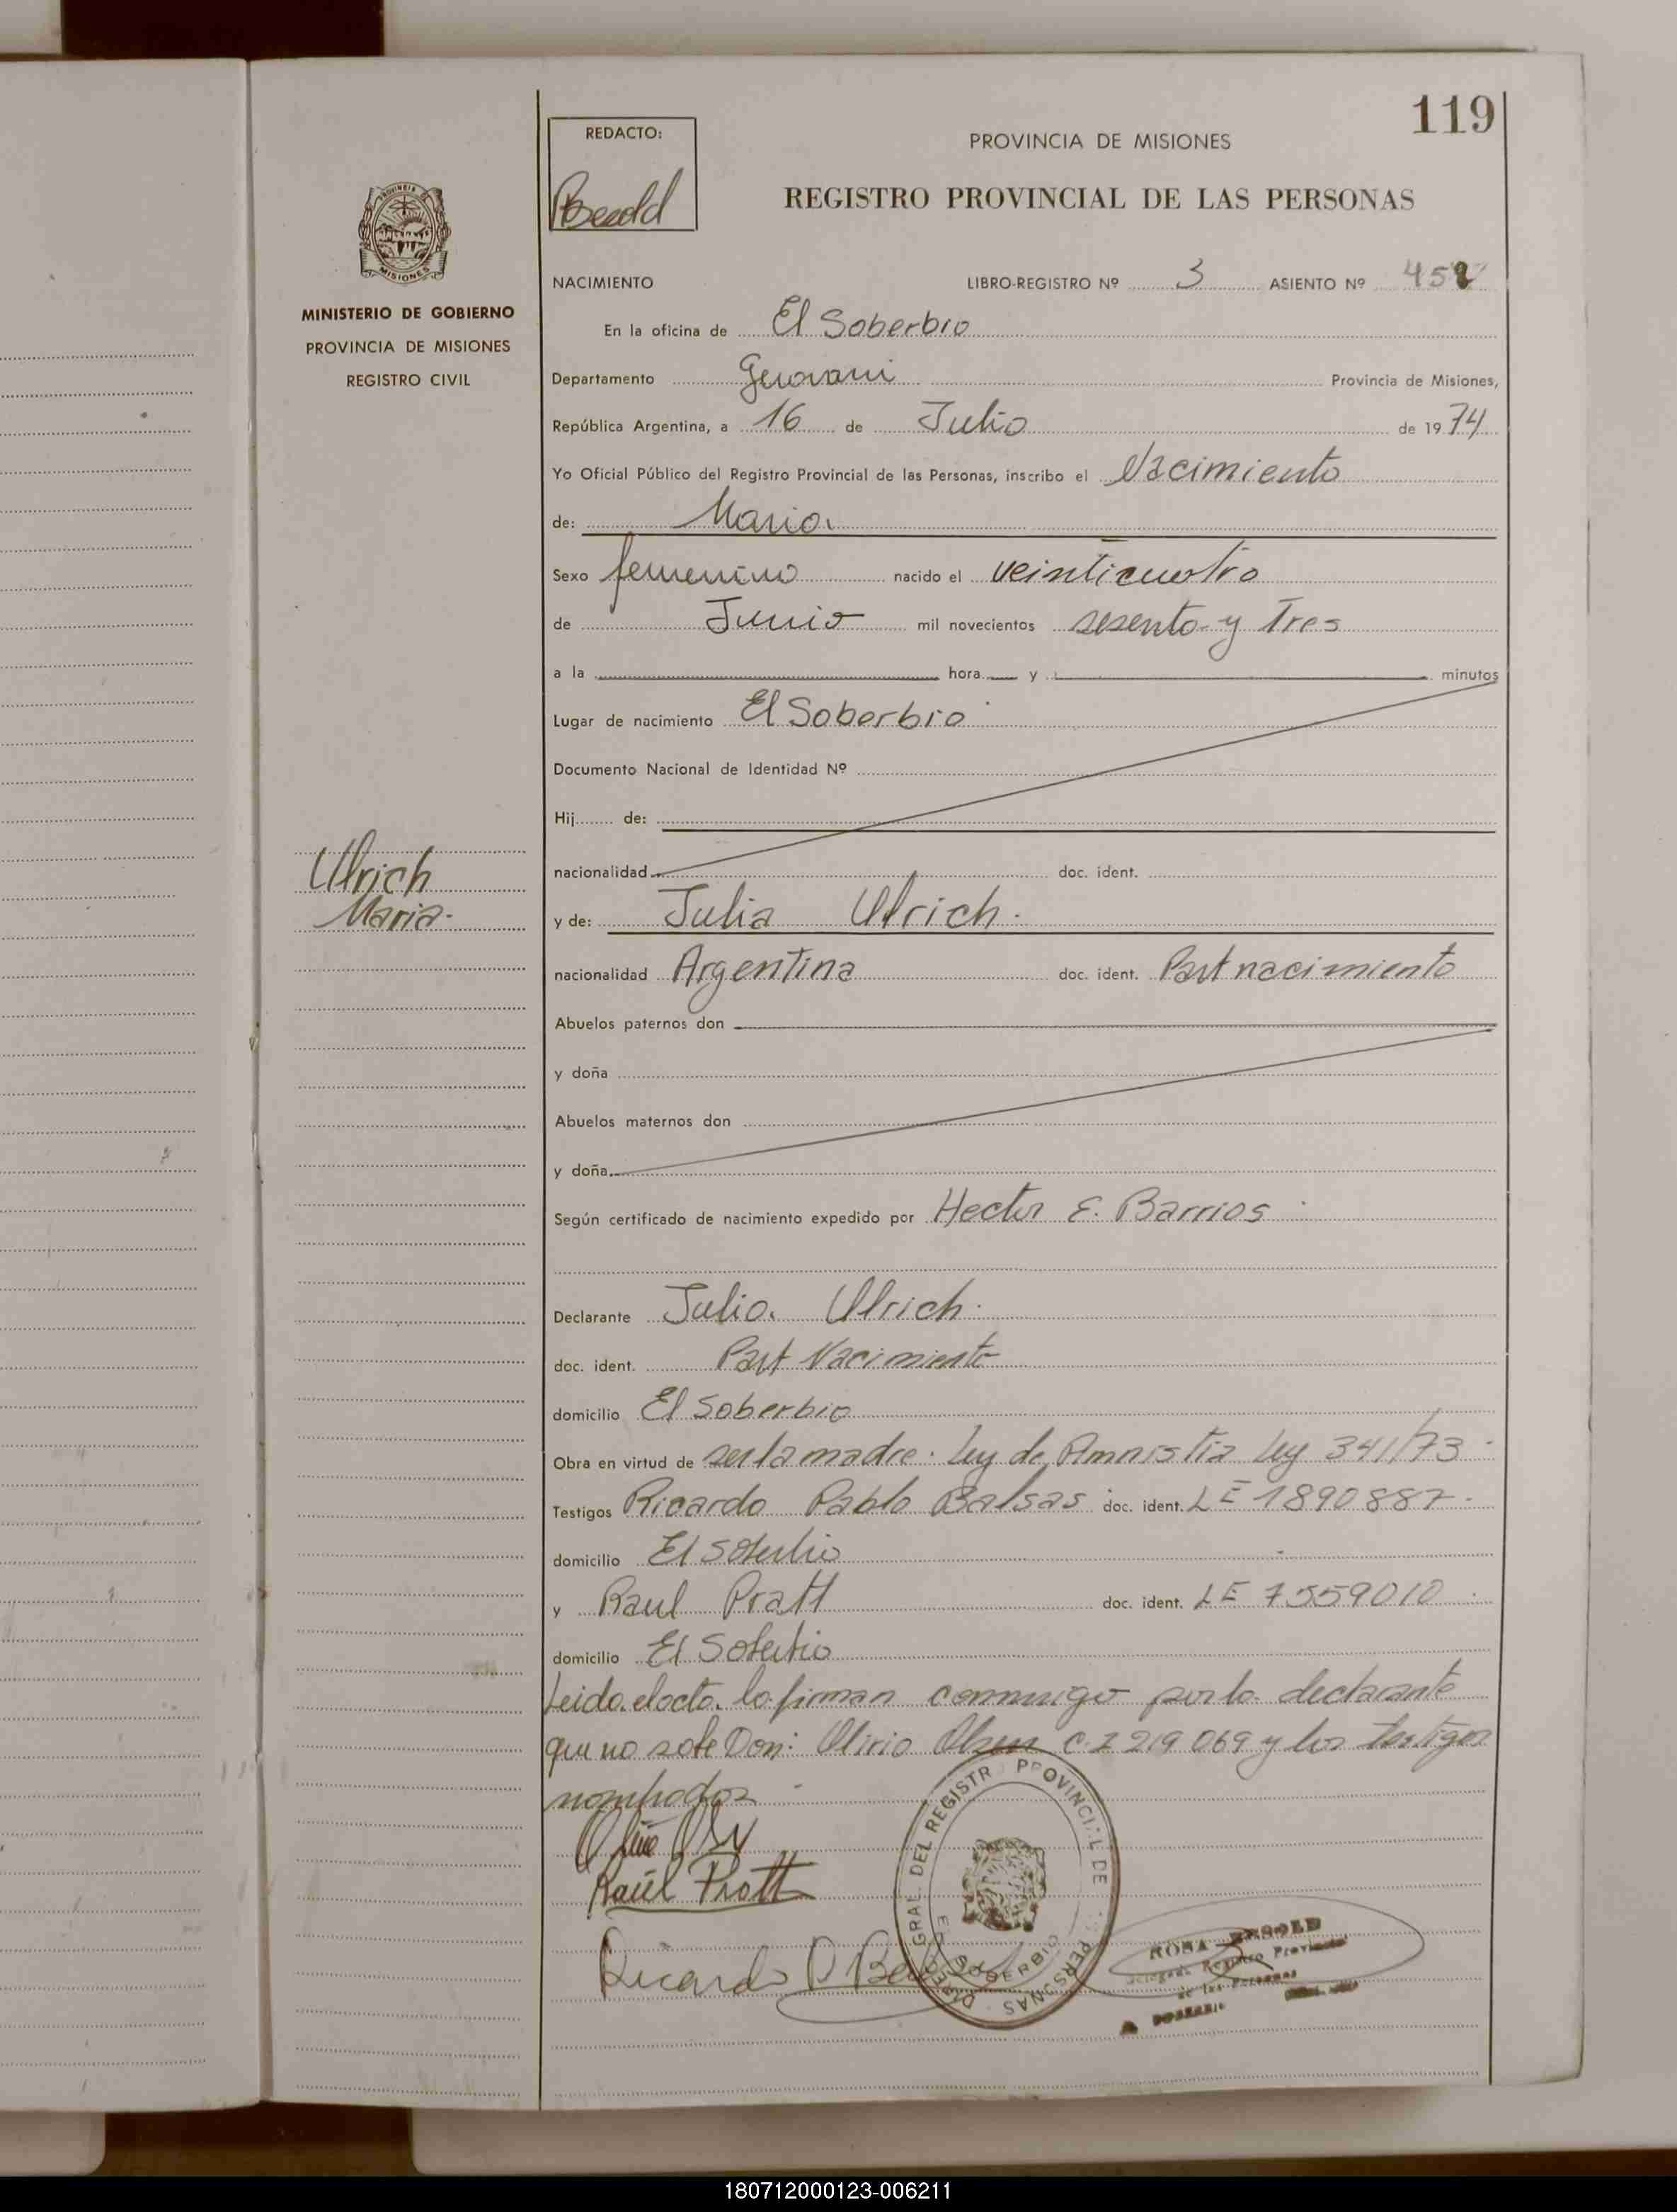 119
REDACTO:
PROVINCIA DE MISIONES
REGISTRO PROVINCIAL DE LAS PERSONAS
PROVINCIA
MISIONES
MINISTERIO DE GOBIERNO
PROVINCIA DE MISIONES
REGISTRO CIVIL
NACIMIENTO LIBRO-REGISTRO Nº 3 ASIENTO Nº
En la oficina de El Soberbio
Departamento Provincia de Misiones,
República Argentina, a 16 de Julio de 1974
Yo Oficial Público del Registro Provincial de las Personas, inscribo el Nacimiento
de: Maria
Sexo femenino nacido el veinticuatro
de Junio mil novecientos sesenta y Tres
a la hora y minutos
Lugar de nacimiento El Soberbio
Documento Nacional de Identidad Nº
Hij de:
nacionalidad doc. ident.
Ulrich
Maria-
y de: Julia Ulrich.
nacionalidad Argentina doc. ident. Part nacimiento
Abuelos paternos don
y doña
Abuelos maternos don
y doña
Según certificado de nacimiento expedido por Hector E. Barrios
Declarante Julia Ulrich.
doc. ident. Part Nacimiento
domicilio El Soberbio
Obra en virtud de ser la madre. Ley de Amnistia Ley 341/73
Testigos Ricardo Pablo Balsas doc. ident. LE 1890887.
domicilio El Soberbio
y Raul Pratt doc. ident. LE 7559010
domicilio El Soberbio
Leido el acta, la firman conmigo por la declarante
que no sabe Don: Olirio C.I 219 069 y los testigos
nombrados
Raúl Pratt
Ricardo P
DIREC GRAL DEL REGISTR PROVINCIAL DE PERSONAS
EL SOBERBIO
ROSA
Registro Provincial
de las Personas
180712000123-006211